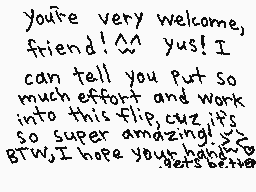 you're very welcome,
friend! ^^ yus! I
can tell you put so
much effort and work
into this flip, cuz it's
so super amazing!
BTW, I hope your hand
gets better